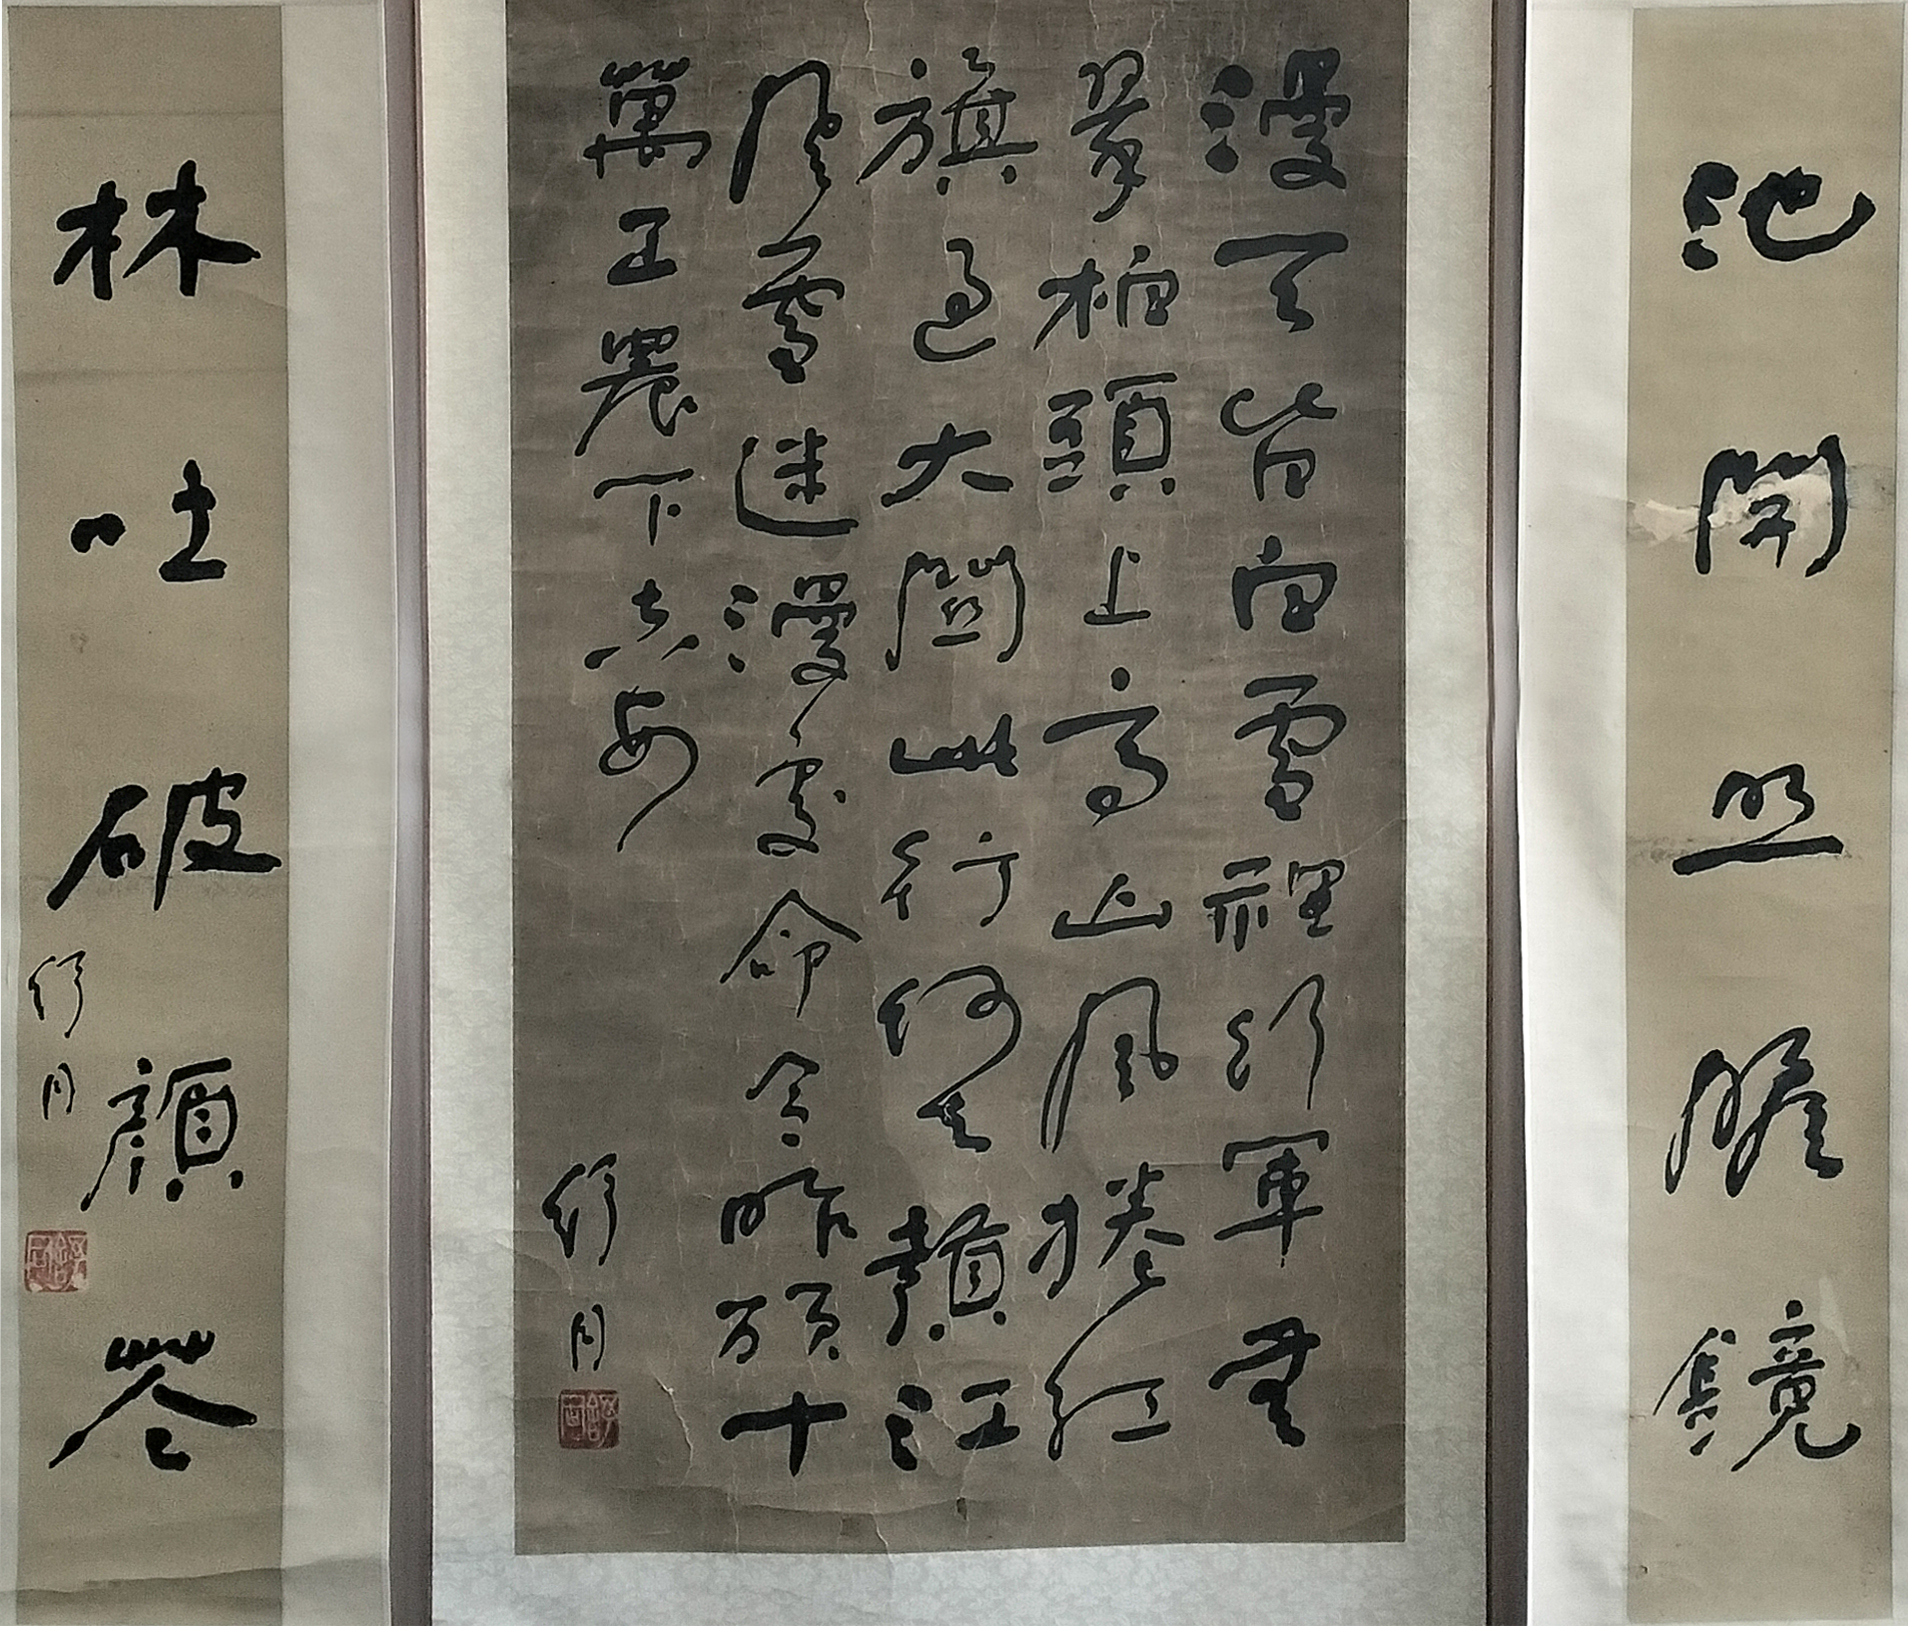 池開照膽鏡
漫天皆白雪裡行軍無
翠柏頭上高山風捲紅
旗過大關此行何去贛江
風雪迷漫處命令昨頒十
萬工農下吉安
舒同
林吐破顏花
舒同